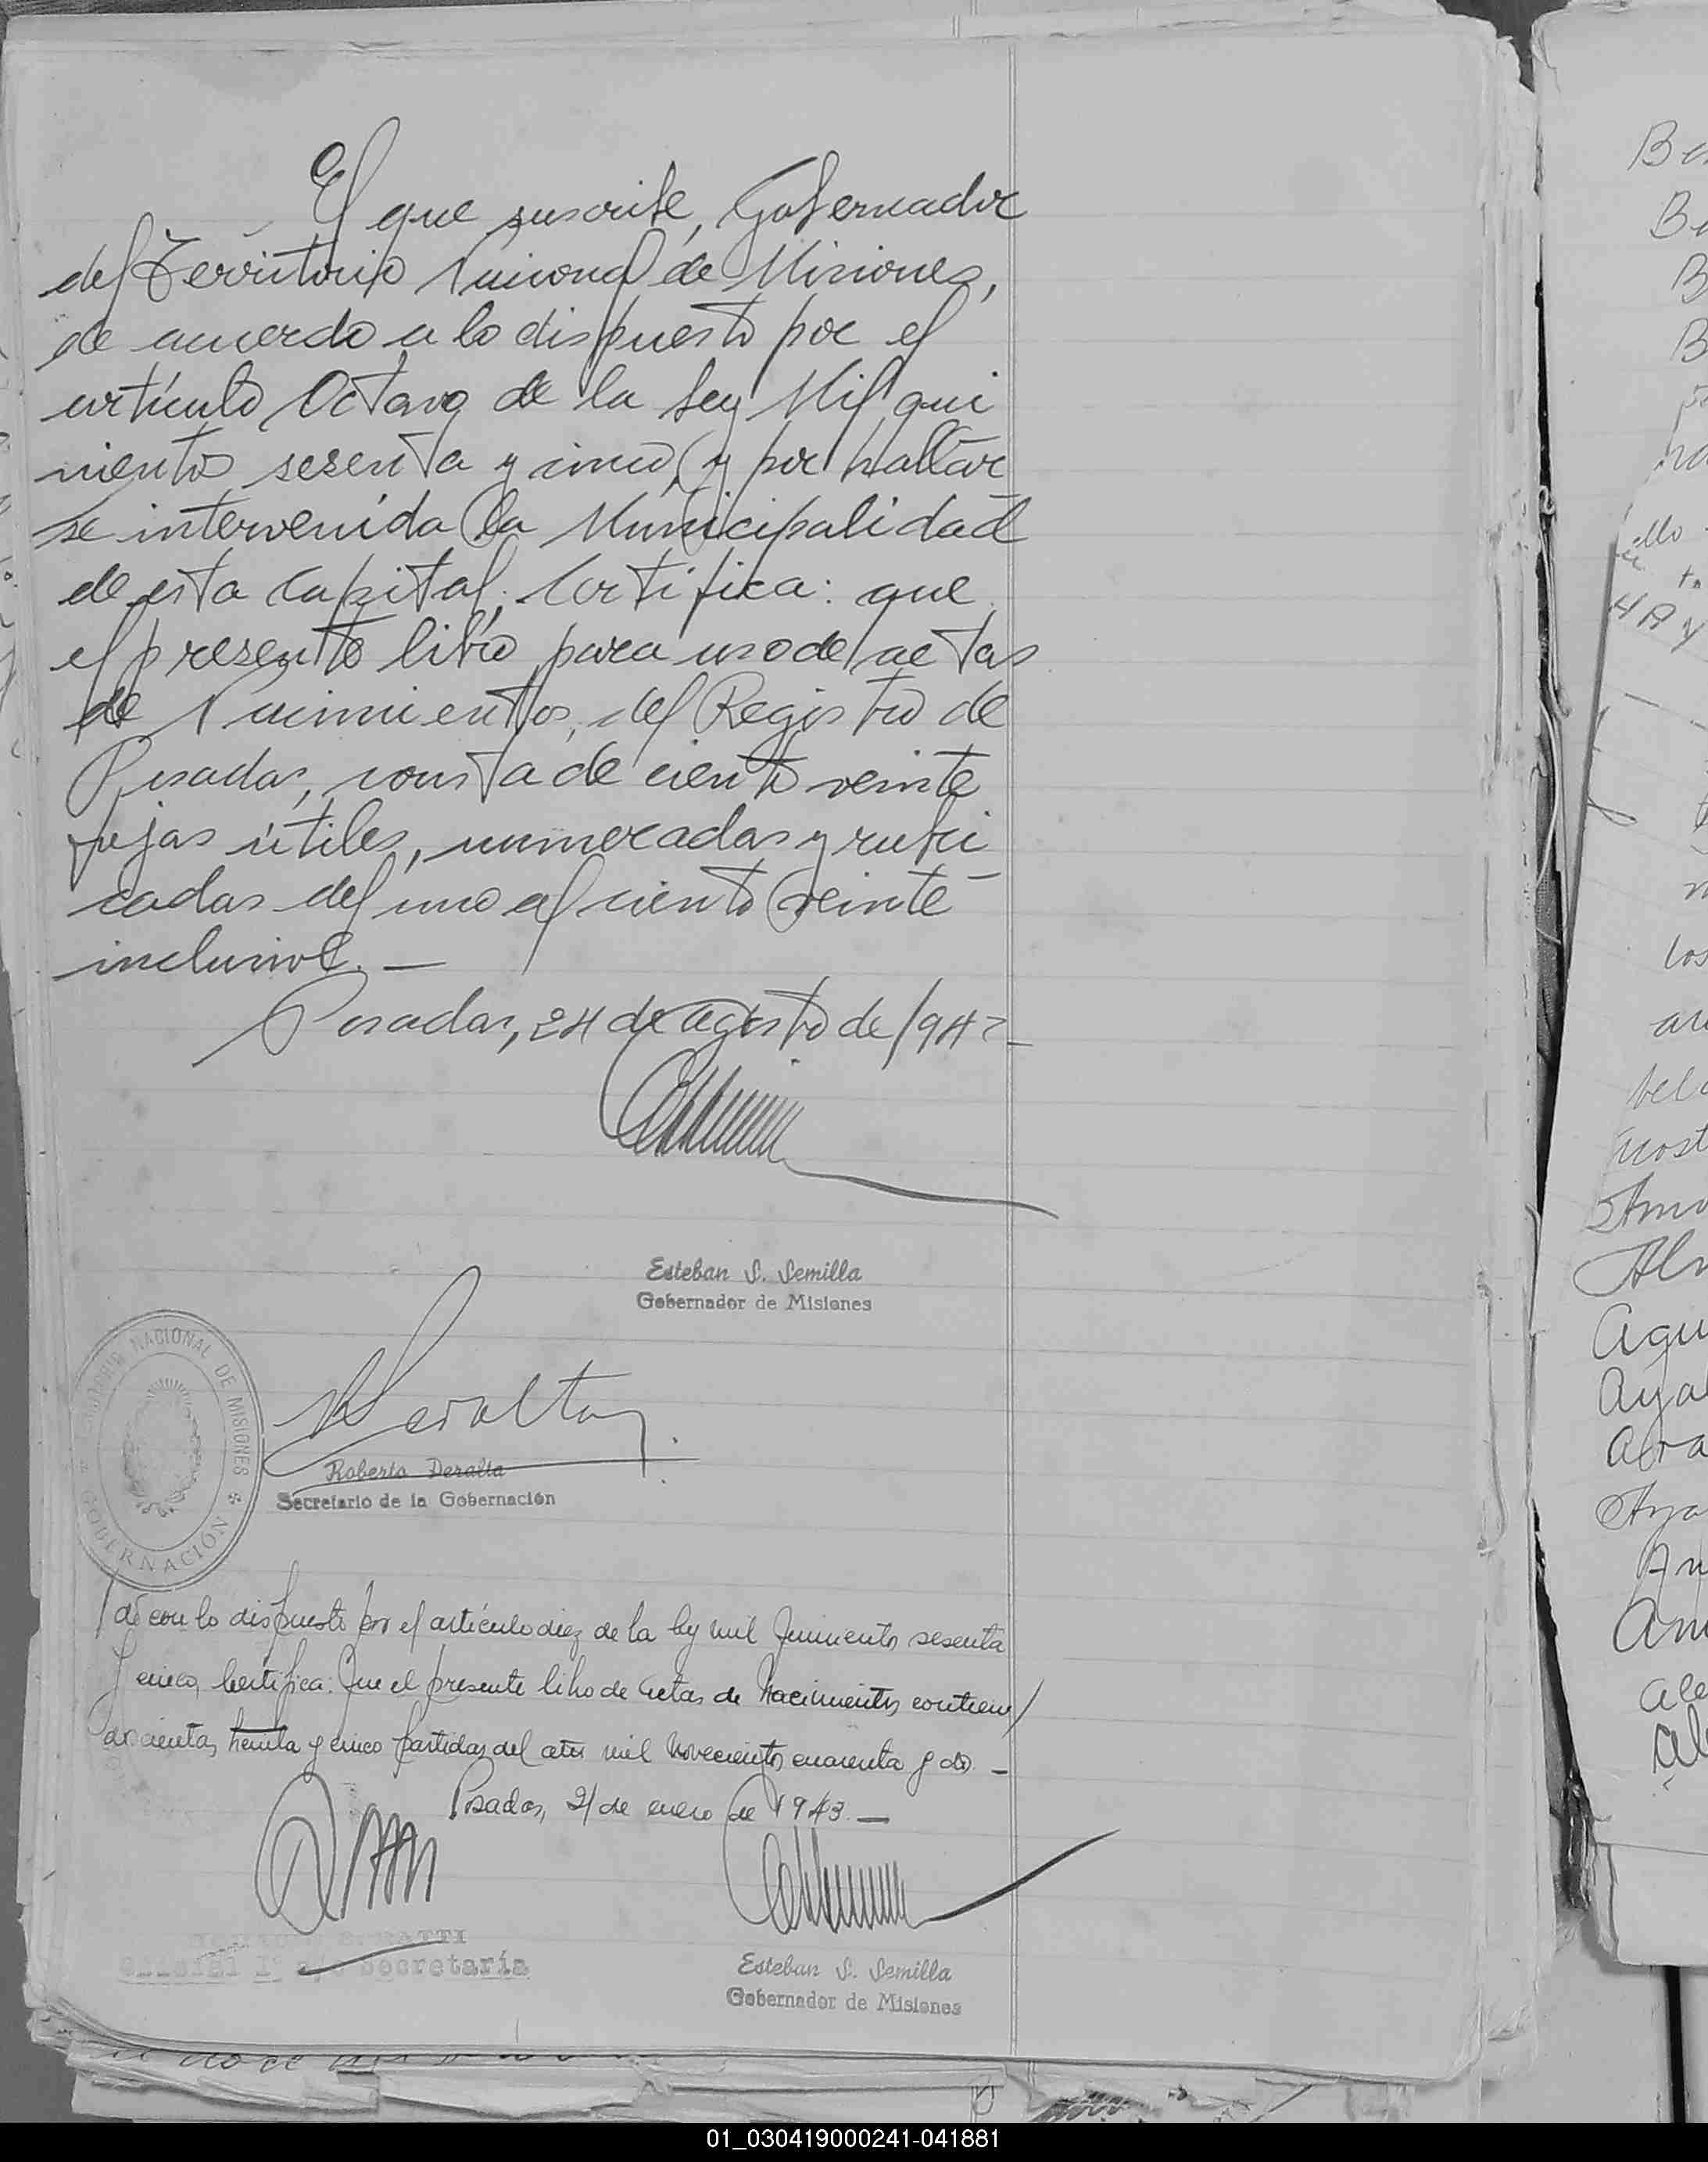 El que suscribe, Gobernador
del Territorio Nacional de Misiones,
de acuerdo a lo dispuesto por el
artículo Octavo de la Ley Mil qui
nientos sesenta y cinco, y por hallar
se intervenida la Municipalidad
de esta Capital; Certifica: que
el presente libro para uso de actas
de Nacimientos, del Registro de
Posadas, consta de ciento veinte
fojas útiles, numeradas y rubri
cadas del uno al ciento veinte
inclusive. —
Posadas, 24 de agosto de 1942
Esteban S. Semilla
Gobernador de Misiones
TERRITORIO NACIONAL DE MISIONES
GOBERNACIÓN
Peralta
Roberto Peralta
Secretario de la Gobernación
de con lo dispuesto por el artículo diez de la ley mil quinientos sesenta
y cinco, Certifica: Que el presente libro de Actas de Nacimientos contiene
doscientas treinta y cinco partidas del año mil novecientos cuarenta y dos. —
Posadas, 21 de enero de 1943. —
Oficial 1° Secretaría
Esteban S. Semilla
Gobernador de Misiones
01_030419000241-041881